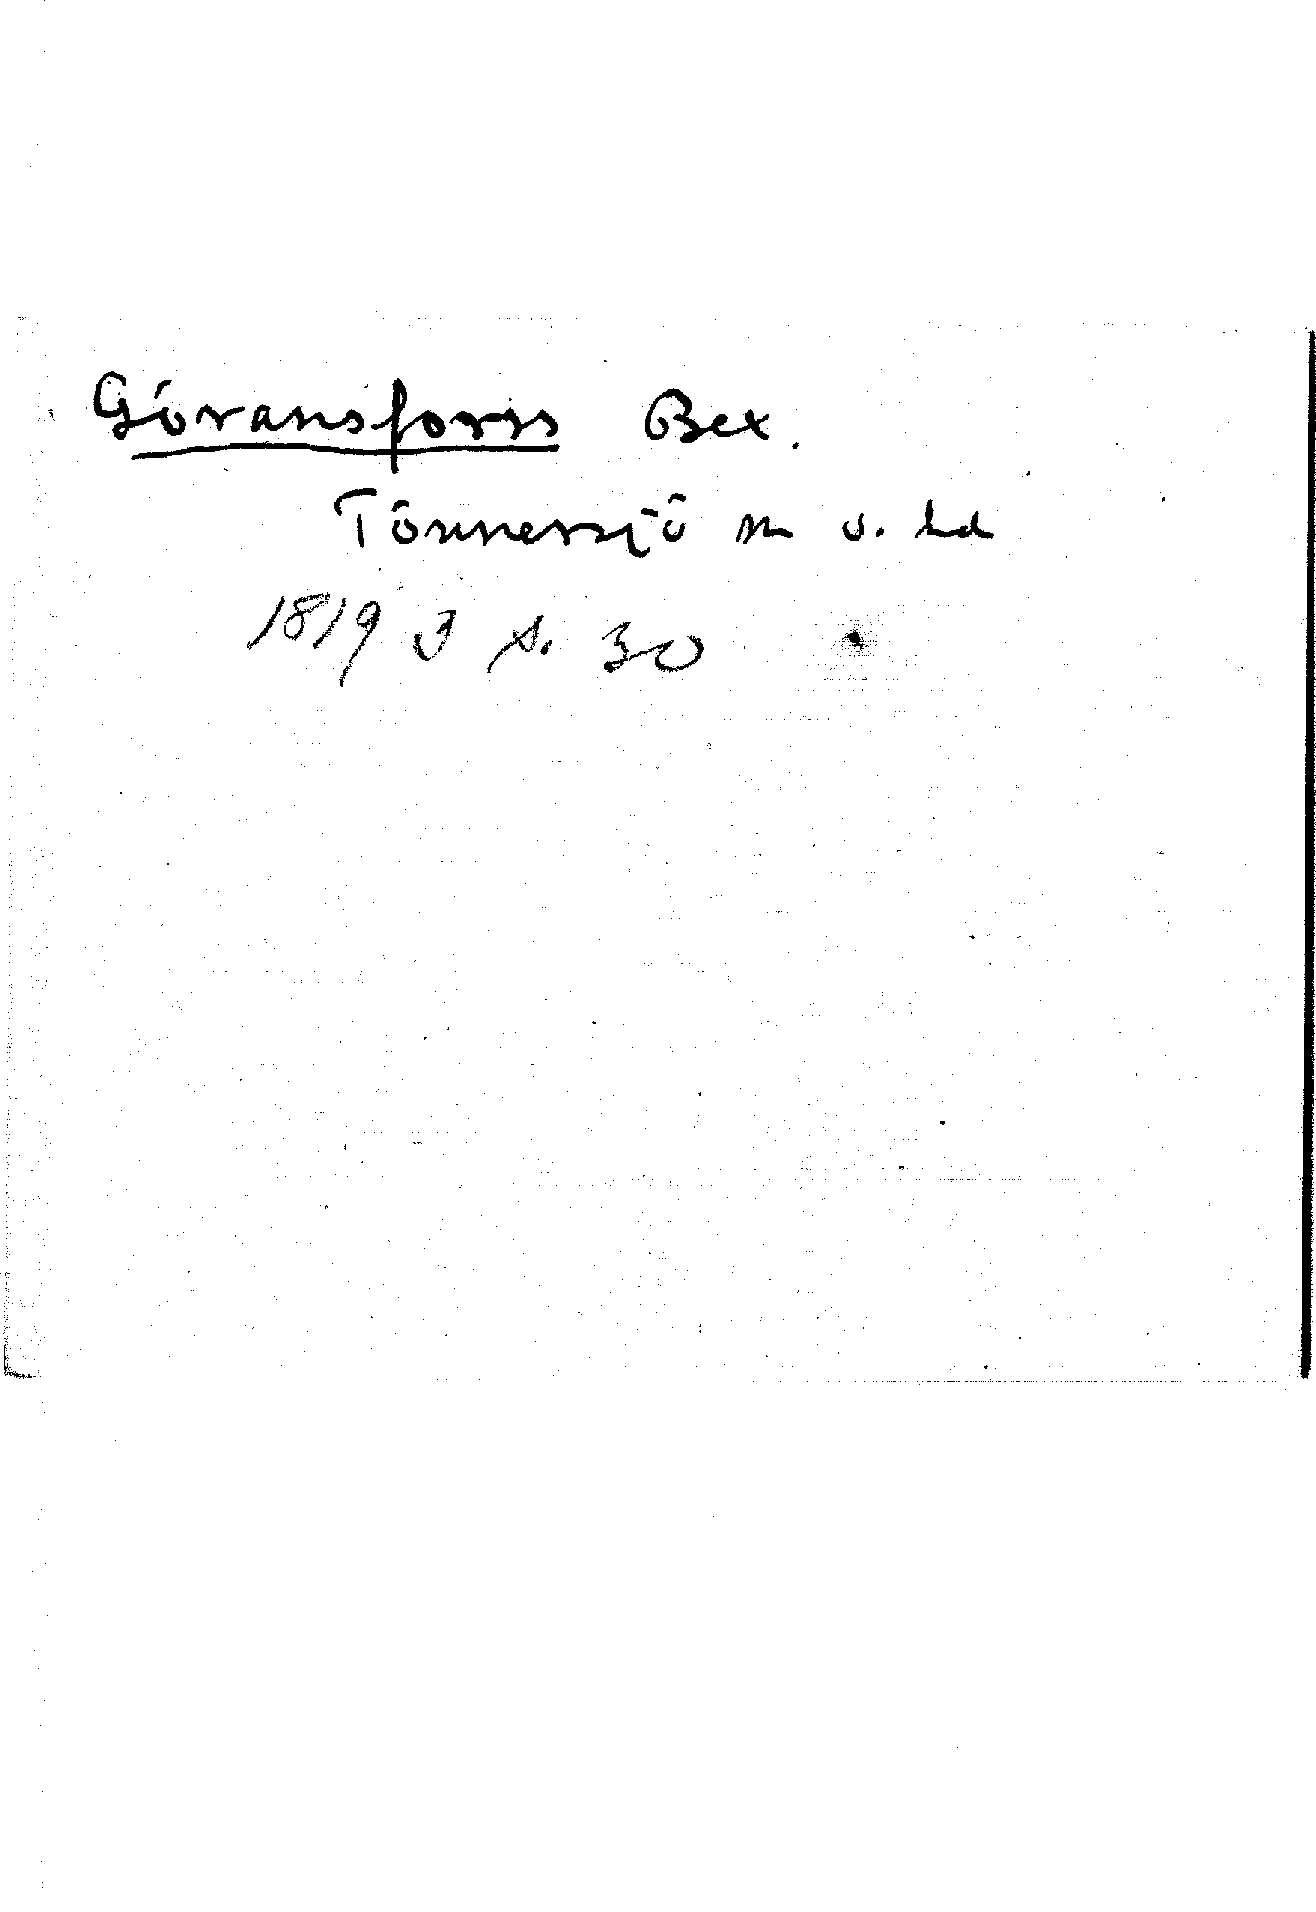 Göransfors Bex.
Tönnersjö sn o. hd
1819 J s. 30